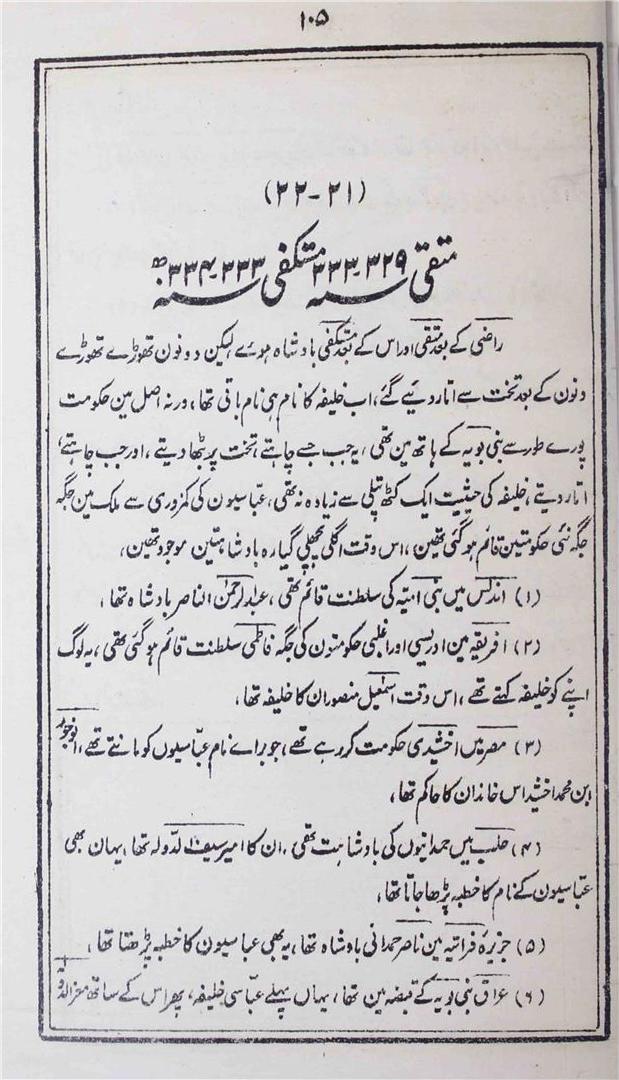 ۱۰۵
(۲۱-۲۲)
متقی سنہ ۳۲۹-۳۳۳ مستکفی سنہ ۳۳۳-۳۳۴ھ
راضی کے بعد متقی اور اس کے بعد مستکفی بادشاہ ہوئے لیکن دونون تھوڑے تھوڑے
دنون کے بعد تخت سے اتار دیئے گئے، اب خلیفہ کا نام ہی نام باقی تھا، ورنہ اصل مین حکومت
پورے طور سے بنی بویہ کے ہاتھ مین تھی، یہ جب جسے چاہتے، تخت پر بٹھا دیتے، اور جب چاہتے،
اتار دیتے، خلیفہ کی حیثیت ایک کٹھ پتلی سے زیادہ نہ تھی، عباسیون کی کمزوری سے ملک مین جگہ
جگہ نئی حکومتین قائم ہو گئی تھین، اس وقت اگلی پچھلی گیارہ بادشاہتین موجود تھین،
(۱) اندلس میں بنی امیہ کی سلطنت قائم تھی، عبدالرحمٰن الناصر بادشاہ تھا،
(۲) افریقہ مین ادریسی اور اغلبی حکومتون کی جگہ فاطمی سلطنت قائم ہو گئی تھی، یہ لوگ
اپنے کو خلیفہ کہتے تھے، اس وقت اسمٰعیل منصور ان کا خلیفہ تھا،
(۳) مصر میں اخشیدی حکومت کر رہے تھے، جو براے نام عباسیوں کو مانتے تھے، انوجور
ابن محمد اخشید اس خاندان کا حاکم تھا،
(۴) حلب میں حمدانیوں کی بادشاہت تھی، ان کا امیر سیف الدولہ تھا، یہان بھی
عباسیون کے نام کا خطبہ پڑھا جاتا تھا،
(۵) جزیرۂ فراتیہ مین ناصر حمدانی بادشاہ تھا، یہ بھی عباسیون کا خطبہ پڑھتا تھا،
(۶) عراق بنی بویہ کے قبضہ مین تھا، یہاں پہلے عباسی خلیفہ، پھر اس کے ساتھ معز الدولہ